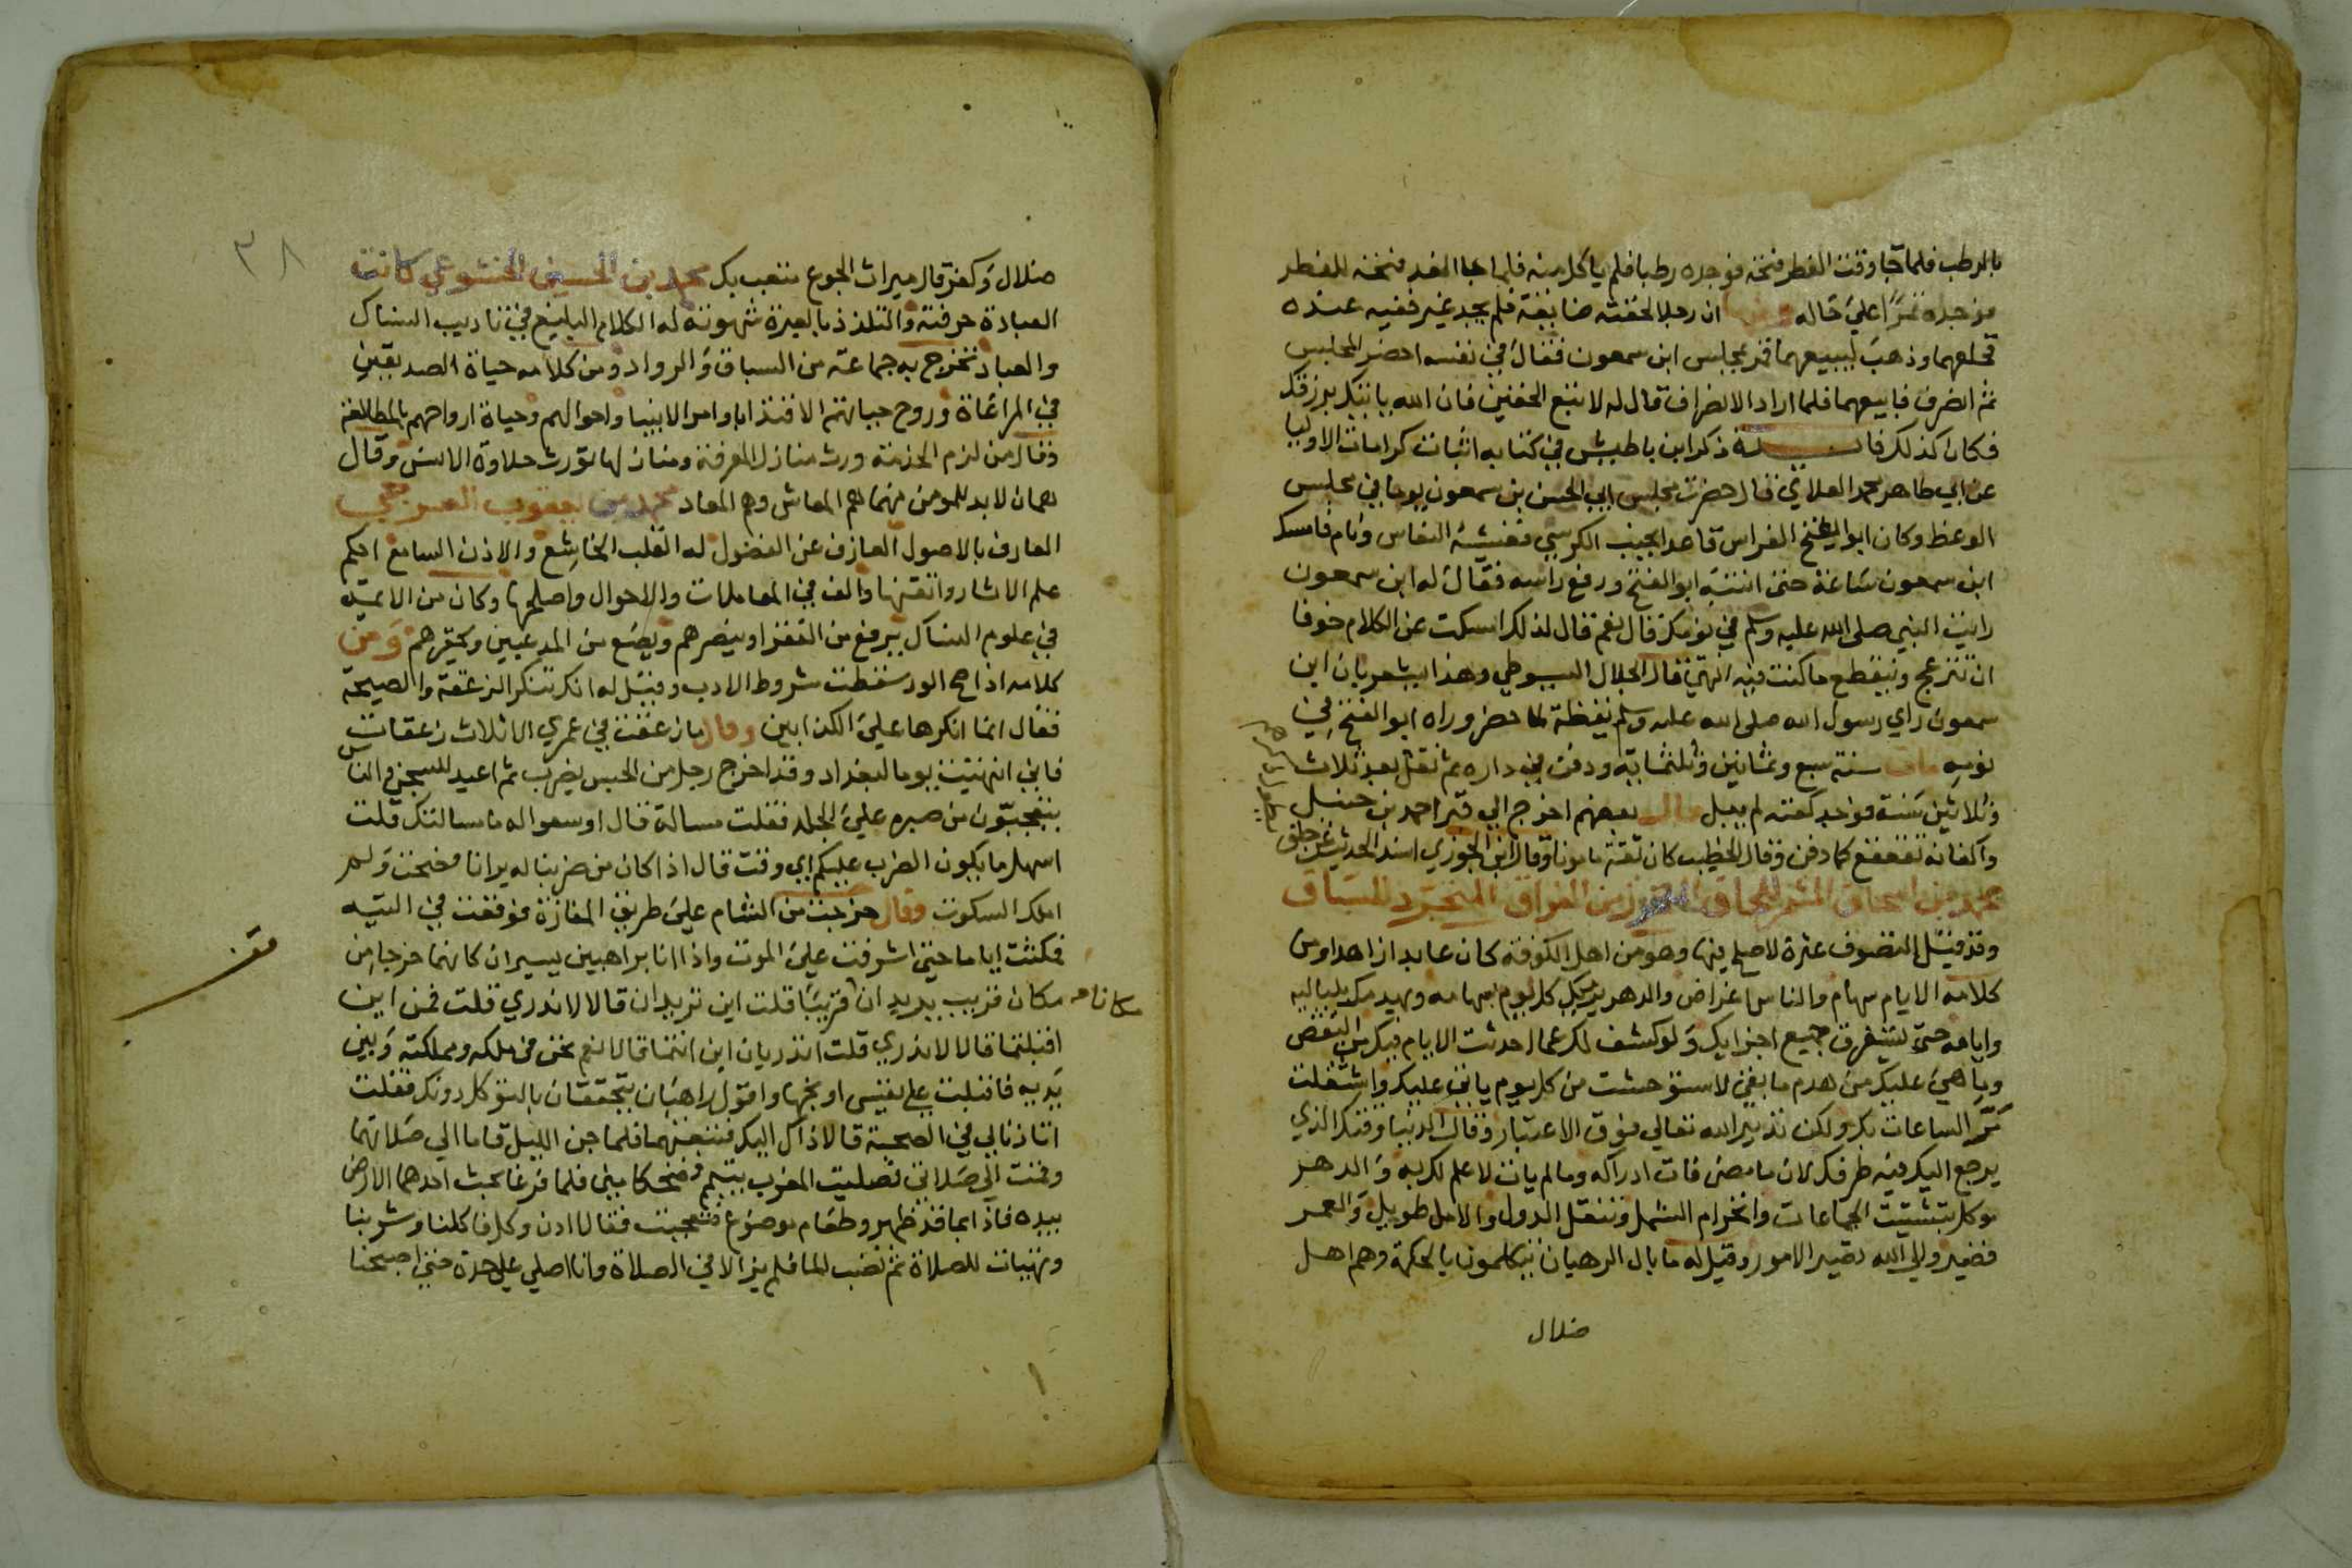 بالرطب فلما جا وقت الفطر فتحه فوجده رطبا فلم ياكل منه فلما جا الغد فتحه للفطر
فوجده تمرا علي حاله ومنها ان رجلا لحقته ضايقة فلم يجد غير خفيه عنده
فحلهما وذهب ليبيعهما فمر بمجلس ابن سمعون فقال في نفسه احضر المجلس
ثم انصرف فابيعهما فلما اراد الانصراف قال له لا تبع الخفين فان الله ياتيك برزقك
فكان كذلك ذكر ابن باطيش في كتابه اثبات كرامات الاوليا
عن ابي طاهر محمد العلاي قال حضرت مجلس ابي الحسن بن سمعون يوما في مجلس
الوعظ وكان ابو الفتح القواس قاعد بجنب الكرسي فغشيه النعاس ونام فامسك
ابن سمعون ساعة حتي انتبه ابو الفتح ورفع راسه فقال له ابن سمعون
رايت النبي صلى الله عليه وسلم في نومك قال نعم قال لذلك امسكت عن الكلام خوفا
ان تنزعج وينقطع ما كنت فيه انتهي قال الجلال السيوطي وهذا يشعر بان ابن
سمعون راي رسول الله صلى الله عليه وسلم يقظة لما حضر وراه ابو الفتح في
نومه مات سنة سبع وثمانين وثلثماية ودفن في داره ثم نقل بعد ثلاث
وثلاثين سنة فوجد كفنه لم يبل قال بعضهم اخرج الي قبر احمد بن حنبل
واكفانه تتقعقع كما دفن وقال الخطيب كان ثقة مامونا وقال ابن الجوزي اسند الحديث عن خلق
محمد بن اسحاق المشمر للحاق من الفراق المتجرد للسباق
وقد قيل التصوف عثرة لا صلح فيها وهو من اهل الكوفة كان عابدا زاهدا ومن
كلامه الايام سهام والناس اغراض والدهر يرميك كل يوم بسهامه ويهدمك بلياليه
وايامه حتي يستغرق جميع اجزايك ولو كشف لك عما احدثت الايام فيك من النقص
وما هي عليك من هدم ما بقي لاستوحشت من كل يوم ياتي عليك واشتغلت
ممر الساعات بك ولكن تدبير الله تعالي فوق الاعتبار وقال الدنيا وقتك الذي
يرجع اليك فيه طرفك لان ما مضي فات ادراكه وما لم يات لا علم لك به والدهر
موكل بتشتيت الجماعات وانخرام الشمل وتنقل الدول والامل طويل والعمر
قصير والي الله تصير الامور وقيل له ما بال الرهبان يتكلمون بالحكمة وهم اهل
ضلال
٣٨
ضلال وكفر قال ميراث الجوع متعب بك محمد بن الحسين الخشوعي كانت
العبادة حرفته والتلذذ بالعبرة شهوته له الكلام البليغ في تاديب النساك
والعباد تخرج به جماعة من السباق والرواد ومن كلامه حياة الصديقين
في المراعاة وروح حياتهم الاقتدا باوامر الانبيا واحوالهم وحياة ارواحهم بالمطالعة
وقال من لزم الخدمة ورث منازل المعرفة ومنازلها تورث حلاوة الانس وقال
همان لا بد للمومن منهما هم المعاش وهم المعاد محمد بن يعقوب العرجي
العارف بالاصول العازف عن الفضول له القلب الخاشع والاذن السامع احكم
علم الاثار واتقنها والف في المعاملات والاحوال واصلحها وكان من الايمة
في علوم النساك يرفع من الفقرا وينصرهم ويضع من المدعيين ويحقرهم ومن
كلامه اذا صح الود سقطت شروط الادب وقيل له انك تنكر الزعقة والصيحة
فقال انما انكرها علي الكذابين وقال ما زعقت في عمري الا ثلاث زعقات
فاني انتهيت يوما لبغداد وقد اخرج رجل من الحبس يضرب ثم اعيد للسجن والناس
يتعجبون من صبره علي الجلد فقلت مسالة قال اوسعوا له ما مسالتك قلت
اسهل ما يكون الضرب عليكم اي وقت قال اذا كان من ضربنا له يرانا فصحت ولم
املك السكوت وقال خرجت من الشام علي طريق المفازة فوقعت في التيه
فمكثت اياما حتي اشرفت علي الموت واذا انا براهبين يسيران كانهما خرجا من
مكان قريب يريدان قريبا قلت اين تريدان قالا لا ندري قلت فمن اين
اقبلتما قالا لا ندري قلت اتدريان اين انتما قالا نعم نحن في ملكه ومملكته وبين
يديه فاقبلت علي نفسي اوبخها واقول راهبان يتحققان بالتوكل دونك فقلت
اتاذنا لي في الصحبة قالا ذاك اليك فتبعتهما فلما جن الليل قاما الي صلاتهما
وقمت الي صلاتي فصليت المغرب بتيمم فضحكا مني فلما فرغا بحث احدهما الارض
بيده فاذا بما قد ظهر وطعام موضوع فتعجبت فقالا ادن وكل فاكلنا وشربنا
وتهيات للصلاة ثم نضب الما فلم يزالا في الصلاة وانا اصلي علي حدة حتي اصبحنا